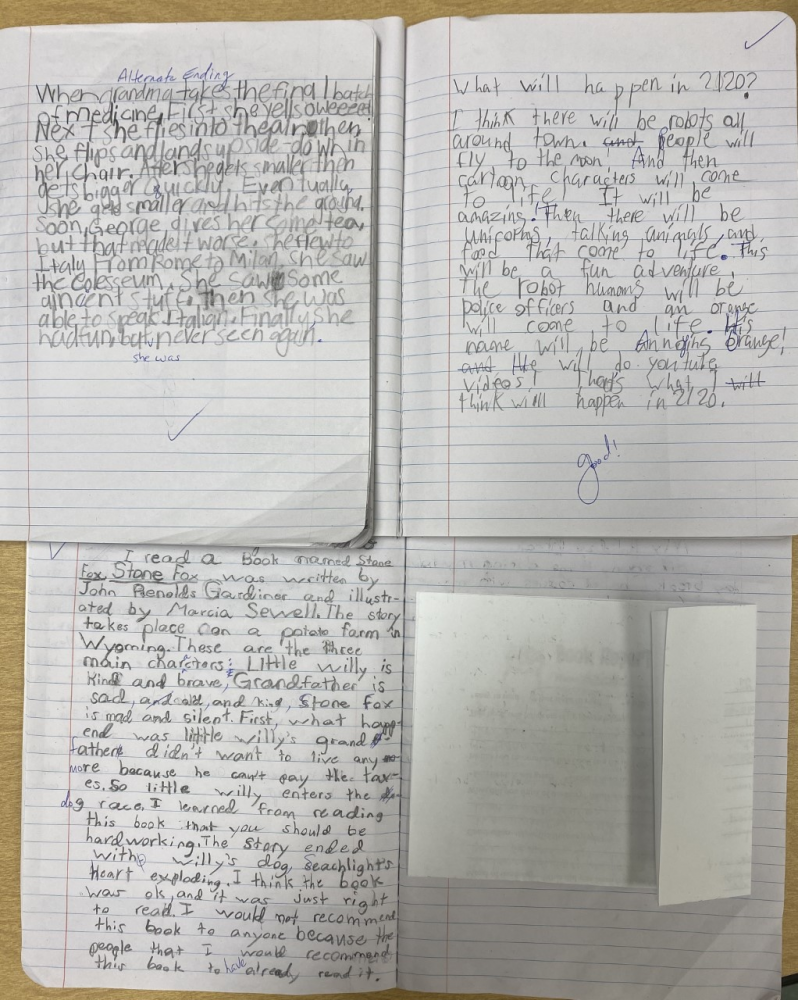 Alternate Ending
When grandma takes the final batch
of medicine, First she yells oweeeee!
Next she flies into the air then
she flips and lands upside-down in
her chair. After she gets smaller then
gets bigger quickly. Eventually
she gets smaller and hits the ground.
Soon, George gives her some tea,
but that made it worse. She flew to
Italy From Rome to Milan, she saw
the Colesseum. She saw some
aincent stuff. Then she was
able to speak Italian. Finally she
had fun, but never seen again.
she was
What will happen in 2120?
I think there will be robots all
around town. and people will
fly to the moon! And then
cartoon characters will come
to life! It will be
amazing. Then there will be
unicorns, talking animals, and
food that come to life. This
will be a fun adventure.
The robot humans will be
police officers and an orange
will come to life. His
name will be Annoying Orange!
and He will do youtube
videos! Thats what I will
think will happen in 2120.
good!
I read a book named Stone
Fox. Stone Fox was written by
John Renolds Gardiner and illustr-
ated by Marcia Sewell. The story
takes place on a potato farm in
Wyoming. These are the three
main charcters: Little willy is
kind and brave, Grandfather is
sad, and old, and kind, Stone Fox
is mad and silent. First, what happ-
end was little willy's grand
father didn't want to live any
more because he can't pay the tax-
es. So little willy enters the
dog race. I learned from reading
this book that you should be
hardworking. The story ended
with willy's dog seachlight's
heart exploding. I think the book
was ok, and it was just right
to read. I would not recommend
this book to anyone because the
people that I would recommend
this book to have already read it.